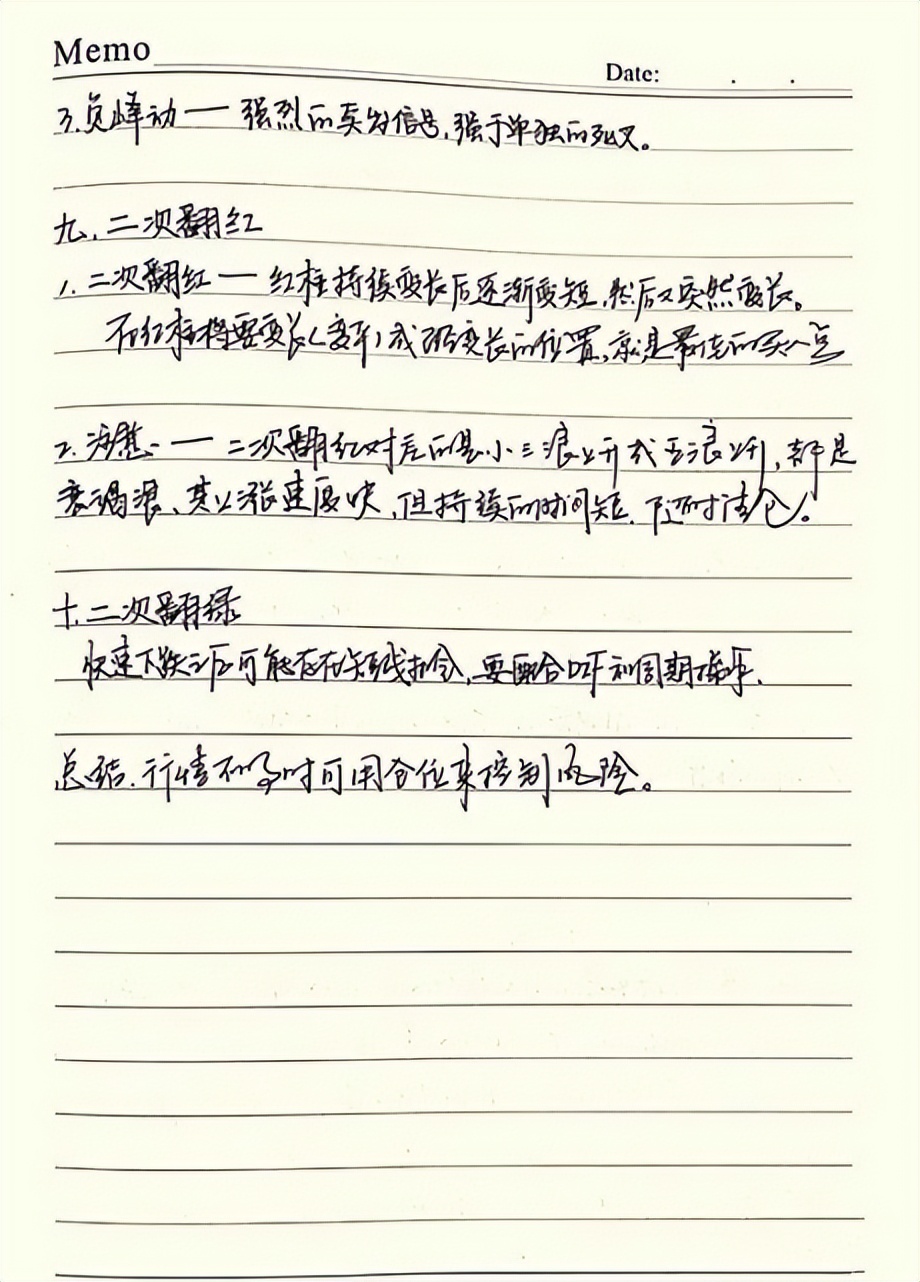 Memo
Date: . .
3.负峰动——强烈的卖为信号,强于单独的死叉。
九.二次翻红
1.二次翻红——红柱持续变长后逐渐变短,然后又突然变长。
在红柱将要变长(变平)或刚变长的位置,就是最佳的买入点
2.注意:——二次翻红对应的是小三浪上升或五浪上升,都是
衰竭浪、其上涨速度快,但持续的时间短.随时清仓。
十.二次翻绿
快速下跌之后可能存在短线机会,要配合 和周期操作.
总结.行情不好时可用仓位来控制风险。